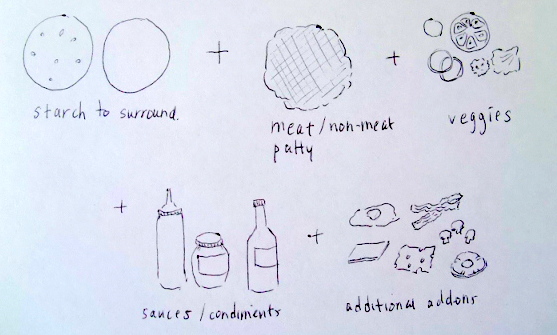 starch to surround.
meat/non-meat
patty
veggies
sauces/condiments
additional addons